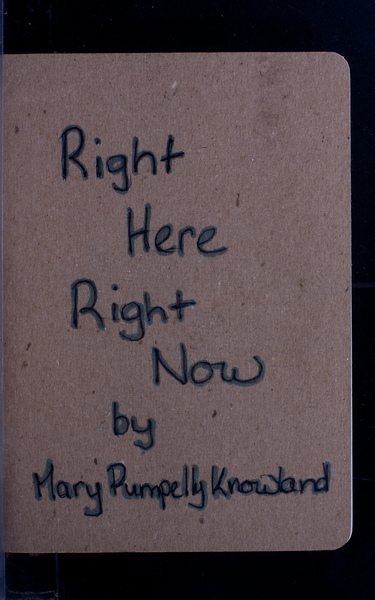 Right
Here
Right
Now
by
Mary Pumpelly Knowland